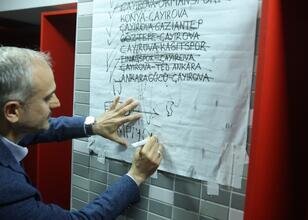 ÇAYIROVA-ORMANSPOR
KONYA-ÇAYIROVA
ÇAYIROVA GAZİANTEP
GÖZTEPE-ÇAYIROVA
ÇAYIROVA KAĞITSPOR
FİNALSPOR-ÇAYIROVA
ÇAYIROVA-TED ANKARA
ANKARAGÜCÜ-ÇAYIROVA